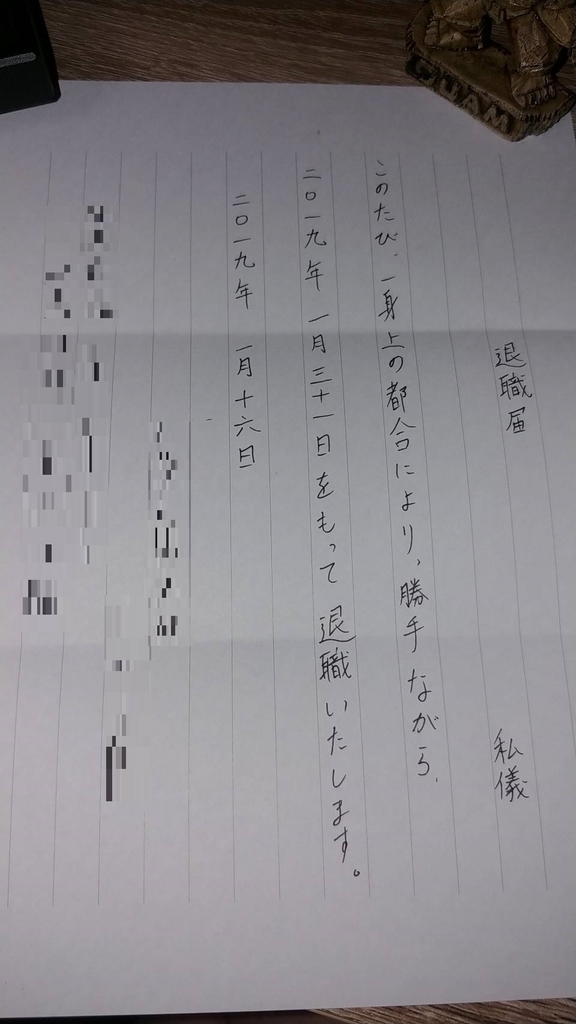 退職届
私儀
このたび、一身上の都合により、勝手ながら、
二〇一九年 一月三十一日をもって退職いたします。
二〇一九年 一月十六日
GUAM